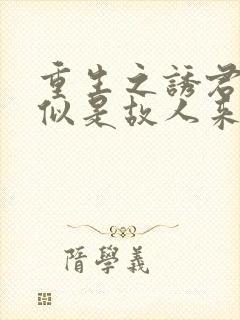 重生之誘君
似是故人來
隋學義